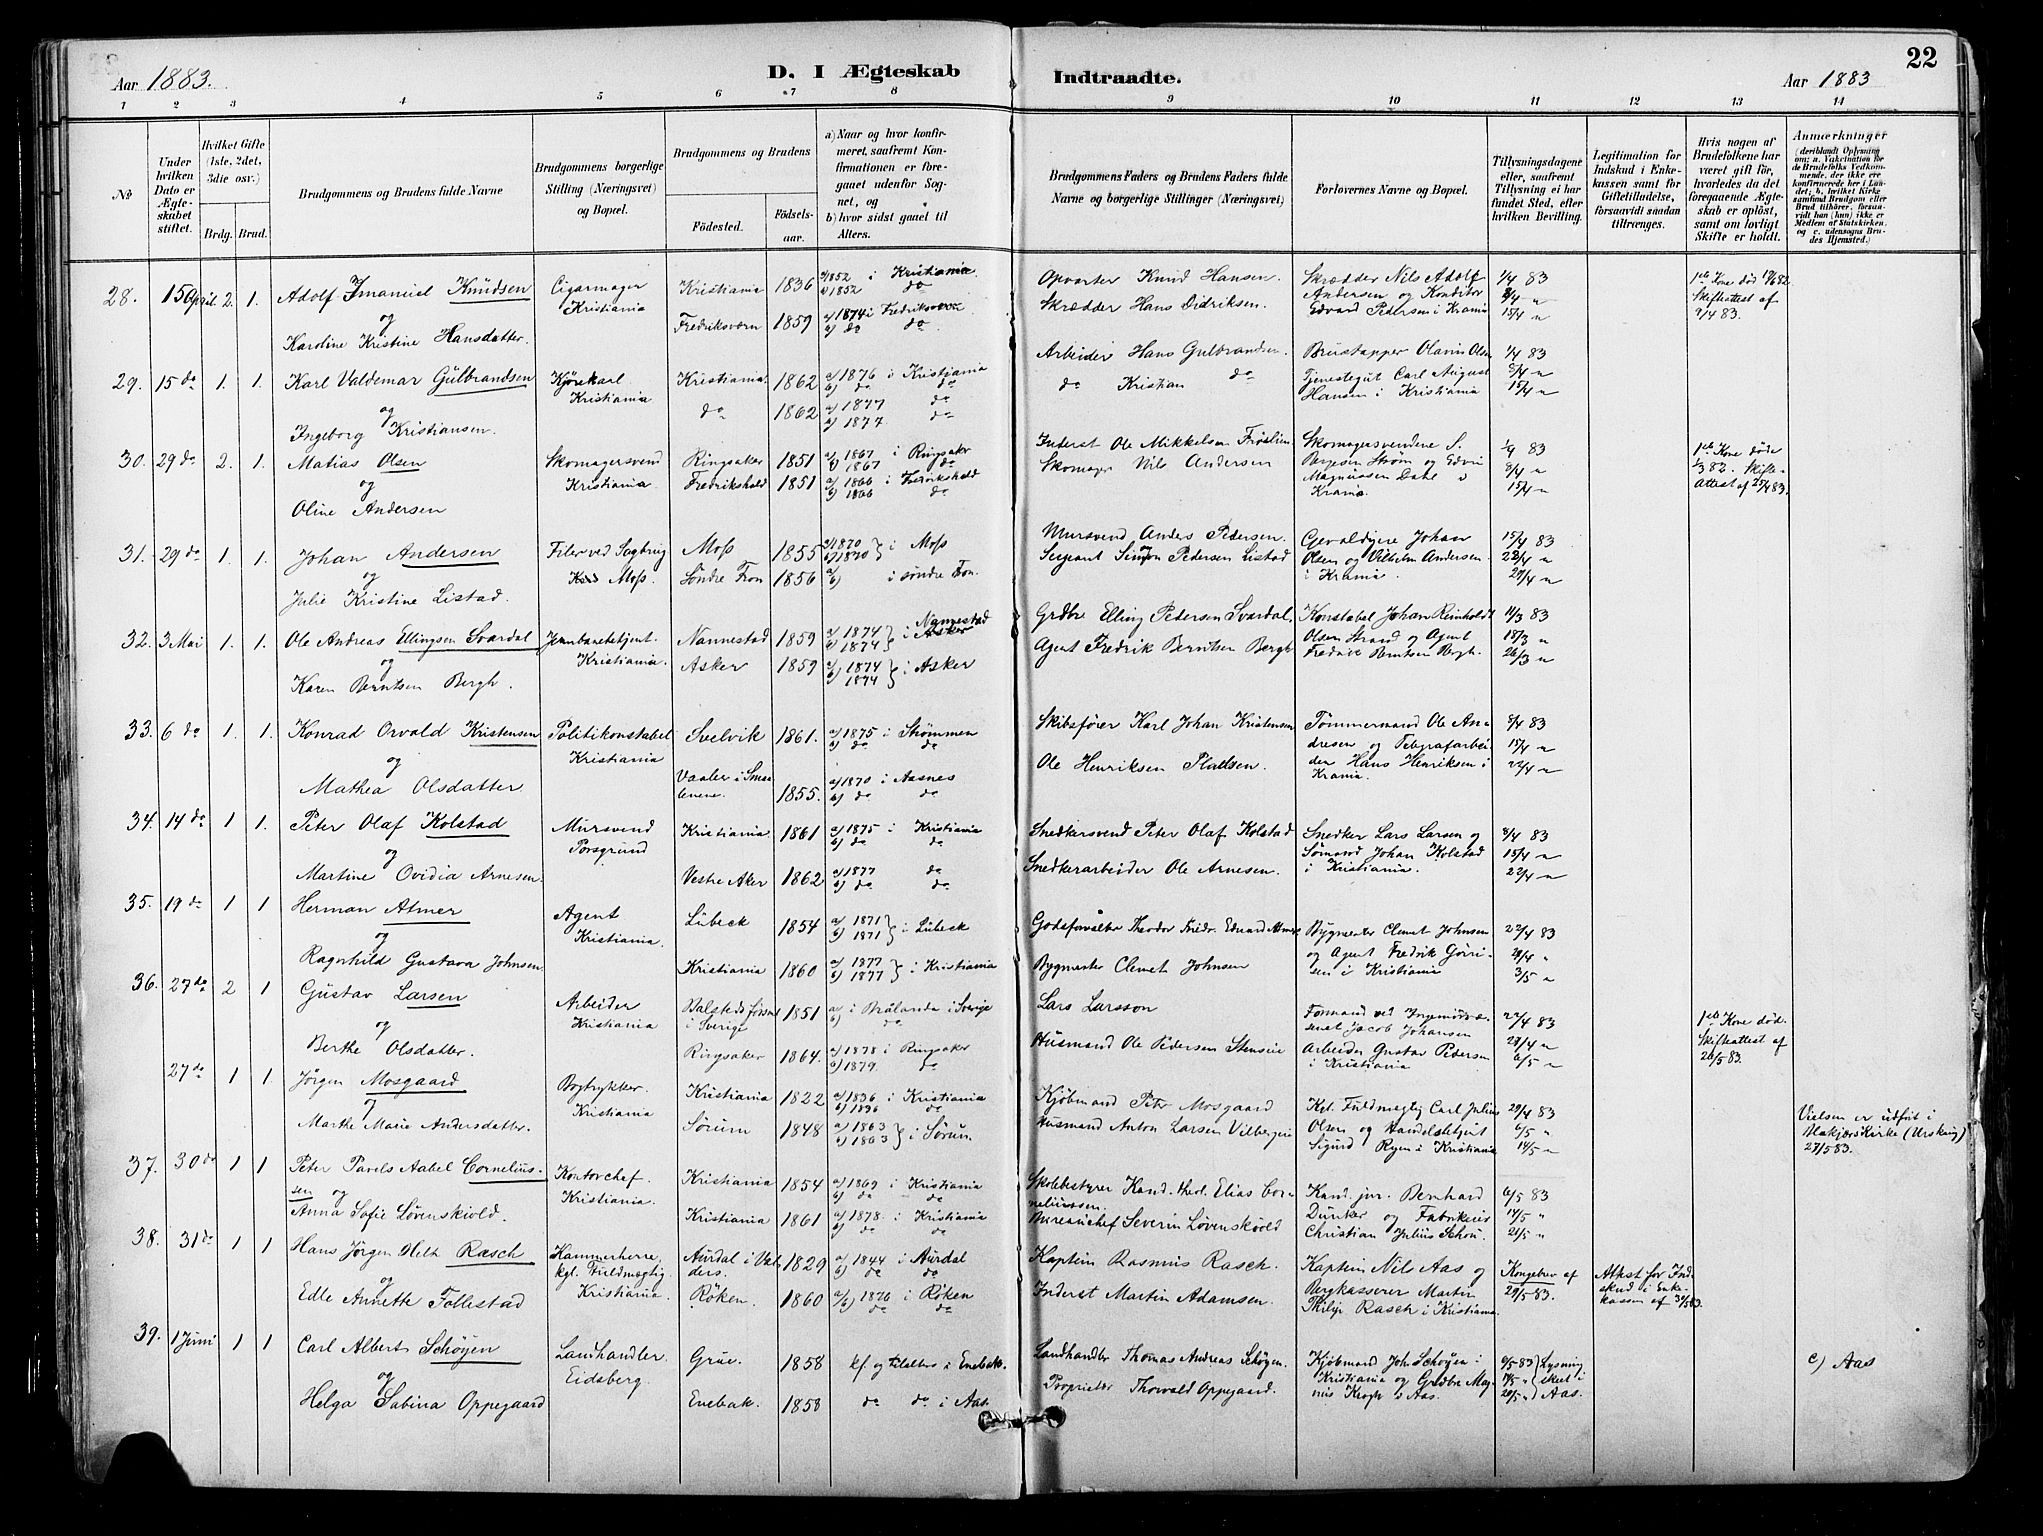 Aar 1883.
D. I Ægteskab
Indtraadte.
Aar 1883
22
1 2 3 4 5 6 7 8 9 10 11 12 13 14
No
Under hvilken Dato er Ægteskabet stiftet.
Hvilket Gifte (1ste, 2det, 3die osv.)
Brdg. Brud.
Brudgommens og Brudens fulde Navne
Brudgommens borgerlige Stilling (Næringsvei) og Bopæl.
Brudgommens og Brudens
Fødested.
Fødselsaar.
a) Naar og hvor konfirmeret, saafremt Konfirmationen er foregaaet udenfor Sognet, og
b) hvor sidst gaaet til Alters.
Brudgommens Faders og Brudens Faders fulde Navne og borgerlige Stillinger (Næringsvei)
Forlovernes Navne og Bopæl.
Tillysningsdagene eller, saafremt Tillysning ei har fundet Sted, efter hvilken Bevilling.
Legitimation for Indskud i Enkekassen samt for Giftetilladelse, forsaavidt saadan tiltrænges.
Hvis nogen af Brudefolkene har været gift før, hvorledes da det foregaaende Ægteskab er opløst, samt om lovligt Skifte er holdt.
Anmærkninger
(deriblandt Oplysning om: a. Vakcination for de Brudefolks Vedkommende, der ikke ere konfirmerede her i Landet; b. hvilket Kirkesamfund Brudgom eller Brud tilhører, forsaavidt han (hun) ikke er Medlem af Statskirken, og c. udensogns Brudes Hjemsted.)
28. 15 April 2. 1. Adolf Imanuel Knudsen Cigarmager Kristiania 1836 a/1852 i Kristiania Opvarter Knud Hansen Skrædder Nils Adolf 1/4 83 1ste Kone død
og Kristiania b/1852 do Skrædder Hans Didriksen. Andersen og Konditor 8/4 " Skifteattest af
Karoline Kristine Hansdatter. Fredriksværn 1859 a/1874 i Fredriksværn Edvard Pedersen i Krania 15/4 " 9/4 83.
b) do do
29. 15 do 1. 1. Karl Valdemar Gulbrandsen Kjørekarl Kristiania 1862 a/1876 i Kristiania Arbeider Hans Gulbrandsen Brustapper Olavus Olsen 1/4 83
og Kristiania b) do do do Kristian do Tjenestegut Carl August 8/4 "
Ingeborg Kristiansen. do 1862 a/1877 do Hansen i Kristiania 15/4 "
1877 do
30. 29 do 2. 1. Matias Olsen Skomagersvend Ringsaker 1851 a/1867 i Ringsaker Inderst Ole Mikkelsen Skomagersvendene S. 1/4 83 1ste Kone døde
og Kristiania b/1867 do Skomager Nils Andersen Bergesen Strøm og Edvin 8/4 " 1/3 82. Skifte-
Oline Andersen Fredrikshald 1851 a/1866 i Fredrikshald Magnussen Dahl i 15/4 " Attest af 25/4 83.
b/1866 do Krania
31. 29 do 1. 1. Johan Andersen Filer ved Sagbrug Moss 1855 a/1870 i Moss Mursvend Anders Pedersen. Gevaldiger Johan 15/4 83
og Moss. b/1870 Sergeant Simon Pedersen Listad Olsen og Vilhelm Andersen 22/4 "
Julie Kristine Listad. Söndre Fron 1856 a/ b) i søndre Fron. i Krania. 29/4 "
32. 3 Mai 1. 1. Ole Andreas Ellingsen Svardal Jernbanetelegr. Nannestad 1859 a/1874 i Nannestad Grdbr Elling Pedersen Svardal, Konstabel Johan Reinholdt 11/3 83
og Kristiania. b/1874 Agent Fredrik Berntsen Bergh Olsen Strand og Agent 18/3 "
Karen Berntsen Bergh. Asker 1859 a/1874 i Asker Fredrik Berntsen Bergh. 26/3 "
b/1874
33. 6 do 1. 1. Konrad Orvald Kristensen Politikonstabel Svelvik 1861. a/1875 i Strømmen Skibsfører Karl Johan Kristensen Tömmermand Ole An- 8/4 83
og Kristiania b) do do dresen og Telegrafarbei- 15/4 "
Mathea Olsdatter Vaaler i Smaalenene. 1855. a/1870 i Aasnes Ole Henriksen Pladsen. der Hans Henriksen i 22/4 "
b) do do Krania.
34. 14 do 1 1. Peter Olaf Kolstad Mursvend Kristiania 1861 a/1875 i Kristiania Snedkersvend Peter Olaf Kolstad Snedker Lars Larsen og 8/4 83
og Porsgrund b) do do Sømand Johan Kolstad 15/4 "
Martine Ovidia Arnesen. Vestre Aker 1862 a/1877 do Snedkerarbeider Ole Arnesen. i Kristiania. 22/4 "
b) do do
35. 19 do 1 1 Herman Atmer Agent Lübeck 1854 a/1871 i Lübeck Godsforvalter Theodor Fridr. Eduard Atmer Bygmester Clemet Johnsen 22/4 83
og Kristiania. b/1871 og Agent Fredrik Görri- 29/4 "
Ragnhild Gustava Johnsen Kristiania 1860 a/1877 i Kristiania Bygmester Clemet Johnsen sen i Kristiania 3/5 "
b/1877
36. 27 do 2 1 Gustav Larsen Arbeider i Sverige 1851 a/ i Brålanda i Sverige Lars Larsson Formand ved 22/4 83 1ste Kone død.
og Kristiania b) do Jacob Johansen 29/4 " Skifteattest af
Berthe Olsdatter. Ringsaker 1864. a/1878 i Ringsaker Husmand Ole Pedersen Arbeider Gustav Pedersen 6/5 " 26/5 83.
b/1879. do i Kristiania
27 do 1 1. Jörgen Mosgaard Bogtrykker. Kristiania 1822 a/1836 i Kristiania Kjöbmand Peter Mosgaard Kgl. Fuldmægtig Carl Julius 29/4 83 Vielsen er udført i
og Kristiania b/1836 do Olsen og Handelsbetjent 6/5 " Kirke (Urskoug)
Marthe Marie Andersdatter. Sörum 1848 a/1863 i Sörum Husmand Anton Larsen Sigurd Ryen i Kristiania 14/5 " 27/5 83.
b/1863
37. 30 do 1 1 Peter Pavels Aabel Cornelius- Kontorchef Kristiania 1854 a/1869 i Kristiania Skolebestyrer Kand. theol. Elias Cor- Kand. jur. Bernhard 6/5 83
sen og Kristiania. b) do do neliussen. Dunker og Fabrikeier 14/5 "
Anna Sofie Løvenskiold. Kristiania 1861 a/1878. i Kristiania Bureauchef Severin Løvenskiold Christian Julius Schou. 21/5 "
b) do do
38. 31 do 1 1 Hans Jörgen Holt Rasch Kammerherre, Aurdal i Val- 1829 a/1844 i Aurdal Kaptein Rasmus Rasch. Kaptein Nils Aas og Kongebrev af Attest for Ind-
og kgl. Fuldmægtig ders. b) do do Bergkasserer Martin 29/5 83. skud i Enke-
Edle Annette Tollestad Kristiania Røken. 1860 a/b) 1876 i Røken Inderst Martin Adamsen. Thilje Rasch i Kristiania kassen af 30/5 83.
do do
39. 1 Juni 1 1 Carl Albert Schöyen Landhandler Grue. 1858 kf og til alters i Enebak. Landhandler Thomas Andreas Schöyen. Kjöbmand Joh. Schøyen i 6/5 83 Lysning c) Aas
og Eidsberg. Kristiania og Grdbr Mag- " skeet i
Helga Sabina Oppegaard Enebak. 1858 do do i Aas. Proprietær Thorvald Oppegaard. nus Krogh i Aas. 20/5 " Aas.